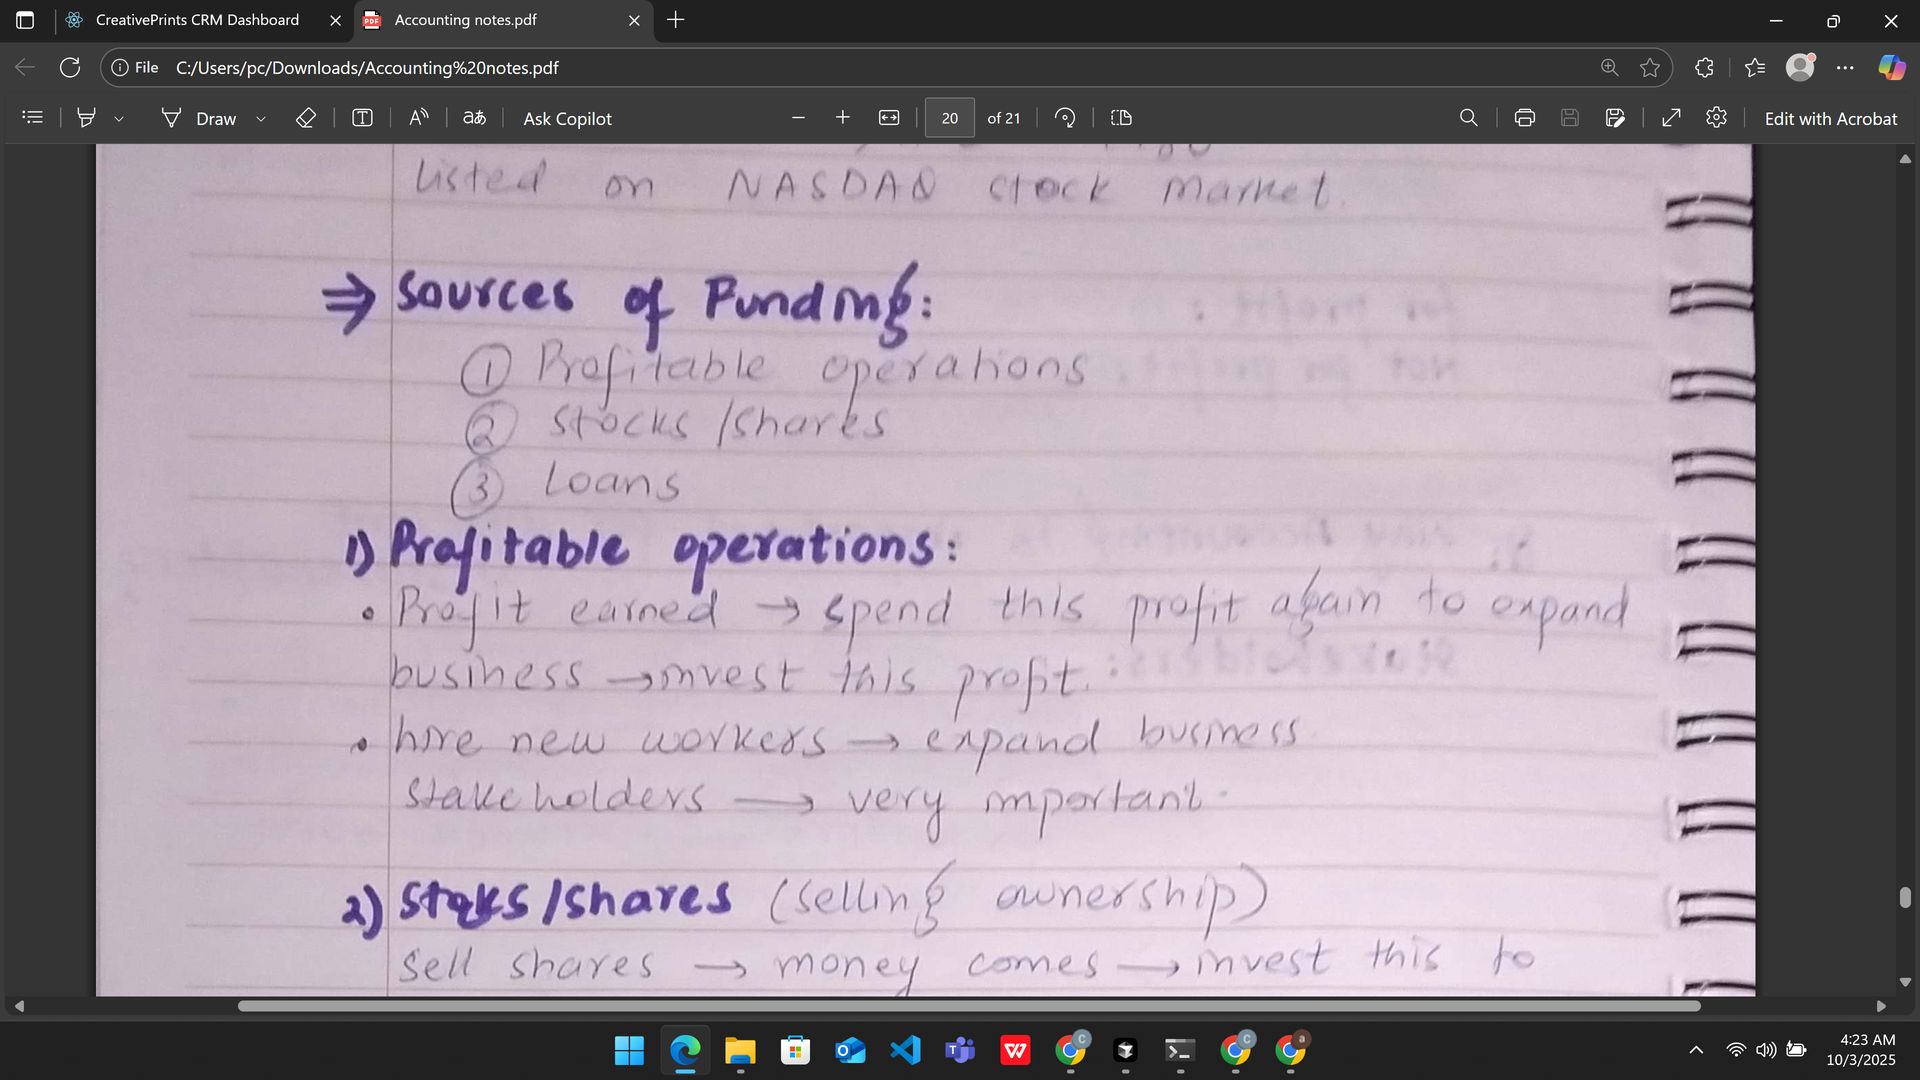 CreativePrints CRM Dashboard
Accounting notes.pdf
File C:/Users/pc/Downloads/Accounting%20notes.pdf
Draw
Ask Copilot
20 of 21
Edit with Acrobat
listed on NASDAQ stock market.
⇒ Sources of Funding:
① Profitable operations
② Stocks /shares
③ Loans
1) Profitable operations:
• Profit earned → spend this profit again to expand
business → invest this profit.
• hire new workers → expand business
stakeholders → very important.
2) Stocks/shares (selling ownership)
Sell shares → money comes → invest this to
4:23 AM
10/3/2025